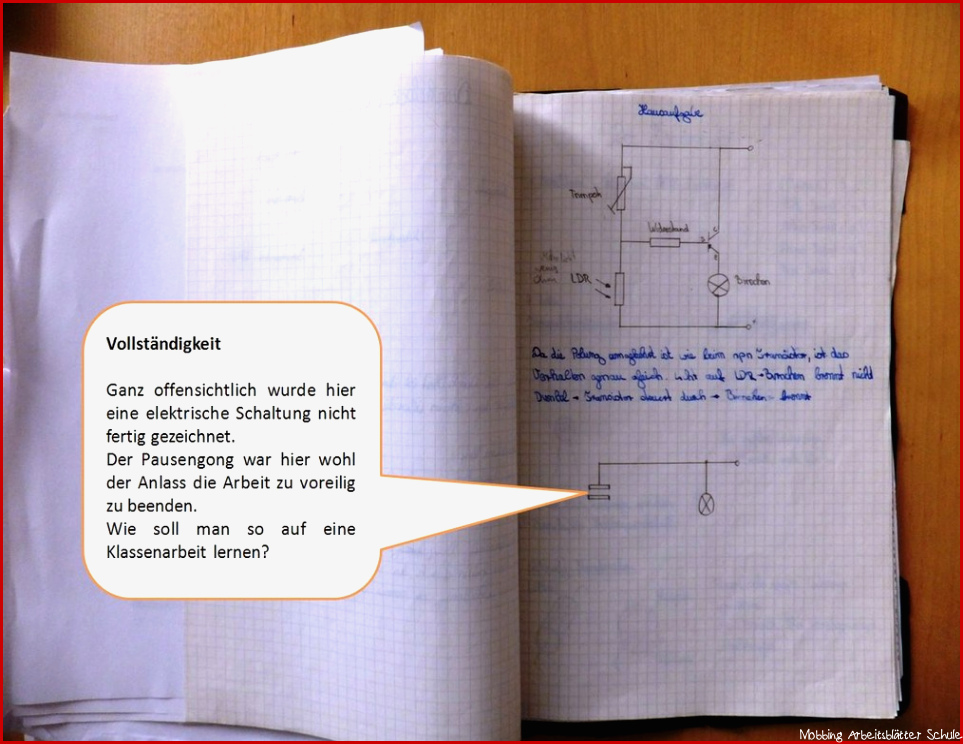 Hausaufgabe
Trimpoti
Widerstand
C
B
E
LDR
Birnchen
Da die Polung umgekehrt ist wie beim npn Transistor, ist das
Verhalten genau gleich. Licht auf LDR → Birnchen brennt nicht
Dunkel → Transistor steuert durch → Birnchen brennt
Vollständigkeit
Ganz offensichtlich wurde hier
eine elektrische Schaltung nicht
fertig gezeichnet.
Der Pausengong war hier wohl
der Anlass die Arbeit zu voreilig
zu beenden.
Wie soll man so auf eine
Klassenarbeit lernen?
Mobbing Arbeitsblätter Schule